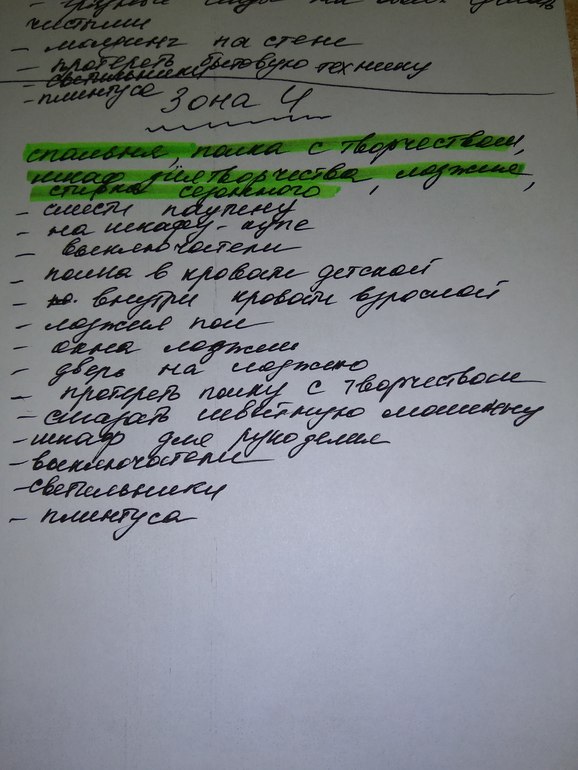 чистыми
- молдинг на стене
- протереть бытовую технику
- светильники
- плинтуса
Зона 4
спальня, полка с творчеством,
шкаф для творчества, лоджия,
стирка сезонного
- смести паутину
- на шкафу-купе
выключатели
- полка в кровати детской
- внутри кровати взрослой
- лоджия пол
- окна лоджии
- дверь на лоджию
- протереть полку с творчеством
- смазать швейную машинку
- шкаф для рукоделия
- выключатели
- светильники
- плинтуса